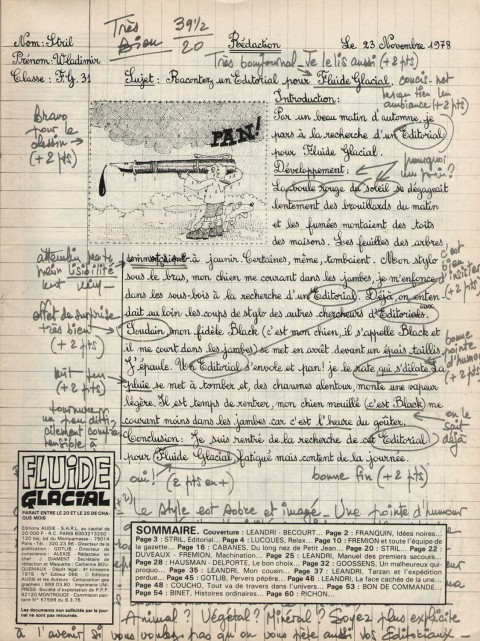 Nom: Stril
Prénom: Wladimir
Classe: F.G. 31
Très
Bien
39½
20
Rédaction
Le 23 Novembre 1978
Très bon journal - Je le lis aussi (+2 pts)
Sujet: Racontez un Editorial pour Fluide Glacial.
concis - net
ambiance (+2 pts)
Introduction:
Par un beau matin d'automne, je
pars à la recherche d'un Editorial
pour Fluide Glacial.
Développement:
La boule rouge du soleil se dégageait
lentement des brouillards du matin
et les fumées montaient des toits
des maisons. Les feuilles des arbres,
bravo
pour le
dessin
(+2 pts)
PAN!
pourquoi
un point?
à jaunir. Certaines, même, tombaient. Mon stylo
sous le bras, mon chien me courant dans les jambes, je m'enfonce
dans les sous-bois à la recherche d'un Editorial. Déjà, on enten-
dait au loin les coups de stylo des autres chercheurs d'Editoriaux.
Soudain, mon fidèle Black (c'est mon chien, il s'appelle Black et
il me court dans les jambes) se met en arrêt devant un épais taillis.
J'épaule. Un Editorial s'envole et pan! je le rate qui s'dilate. La
pluie se met à tomber et, des chaumes alentour, monte une vapeur
légère. Il est temps de rentrer, mon chien mouillé (c'est Black) me
courant moins dans les jambes car c'est l'heure du goûter.
Conclusion: Je suis rentré de la recherche de cet Editorial
pour Fluide Glacial fatigué mais content de la journée.
effet de surprise
très bien
(+2 pts)
c'est
bien
d'insister
(+2 pts)
bonne
pointe
d'humour
(+2 pts)
(+2 pts)
on le
sait
déjà
oui!
(2 pts en +)
bonne fin (+2 pts)
Le style est sobre et imagé - Une pointe d'humour
FLUIDE
GLACIAL
PARAIT ENTRE LE 20 ET LE 25 DE CHA-
QUE MOIS
Editions AUDIE - S.A.R.L. au capital de
20 000 F - R.C. PARIS
120 bis, bd du Montparnasse - 75014
Directeur de la
publication: GOTLIB - Directeur de
conscience: ALEXIS - Rédacteur en
chef: J. DIAMENT - Secrétariat de
rédaction et Maquette: Catherine BOU-
Les documents non sollicités par le jour-
nal ne sont pas retournés.
SOMMAIRE. Couverture: LEANDRI - BECOURT... Page 2: FRANQUIN, Idées noires...
Page 3: STRIL, Editorial... Page 4: LUCQUES, Relax... Page 10: FREMION et toute l'équipe de
la gazette... Page 16: CABANES, Du long nez de Petit Jean... Page 20: STRIL... Page 22:
DUVEAUX - FREMION, Machination... Page 25: LEANDRI, Manuel des premiers secours...
Page 28: HAUSMAN - DELPORTE, Le bon choix... Page 32: GOOSSENS, Un malheureux qui-
proquo... Page 35: LEANDRI, Mon cousin... Page 37: LEANDRI, Tarzan et l'expédition
perdue... Page 45: GOTLIB, Pervers pépère... Page 46: LEANDRI, La face cachée de la une...
Page 48: COUCHO, Tout va de travers dans l'univers... Page 53: BON DE COMMANDE...
Page 54: BINET, Histoires ordinaires... Page 60: PICHON...
Animal? Végétal? Minéral? Soyez plus explicite